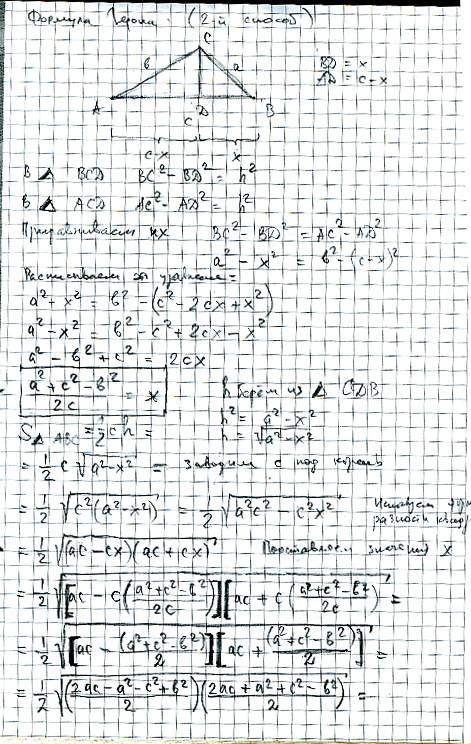 Формула Герона. (2-й способ)
C
в a
BD = x
AD = c-x
A D B
c
c-x x
В △ BCD BC² - BD² = h²
В △ ACD AC² - AD² = h²
Приравниваем их BC² - BD² = AC² - AD²
a² - x² = в² - (c-x)²
Расписываем это уравнение =
a² - x² = в² - (c² - 2cx + x²)
a² - x² = в² - c² + 2cx - x²
a² - в² + c² = 2cx
(a² + c² - в²)/2c = x
h берём из △ CDB
h² = a² - x²
h = √(a² - x²)
S△ABC = 1/2 c h =
= 1/2 c √(a² - x²) = заводим c под корень
= 1/2 √(c²(a² - x²)) = 1/2 √(a²c² - c²x²)
разности
= 1/2 √((ac - cx)(ac + cx)) Подставляем значения x
= 1/2 √([ac - c((a² + c² - в²)/2c)][ac + c((a² + c² - в²)/2c)]) =
= 1/2 √([ac - (a² + c² - в²)/2][ac + (a² + c² - в²)/2]) =
= 1/2 √(((2ac - a² - c² + в²)/2)((2ac + a² + c² - в²)/2)) =